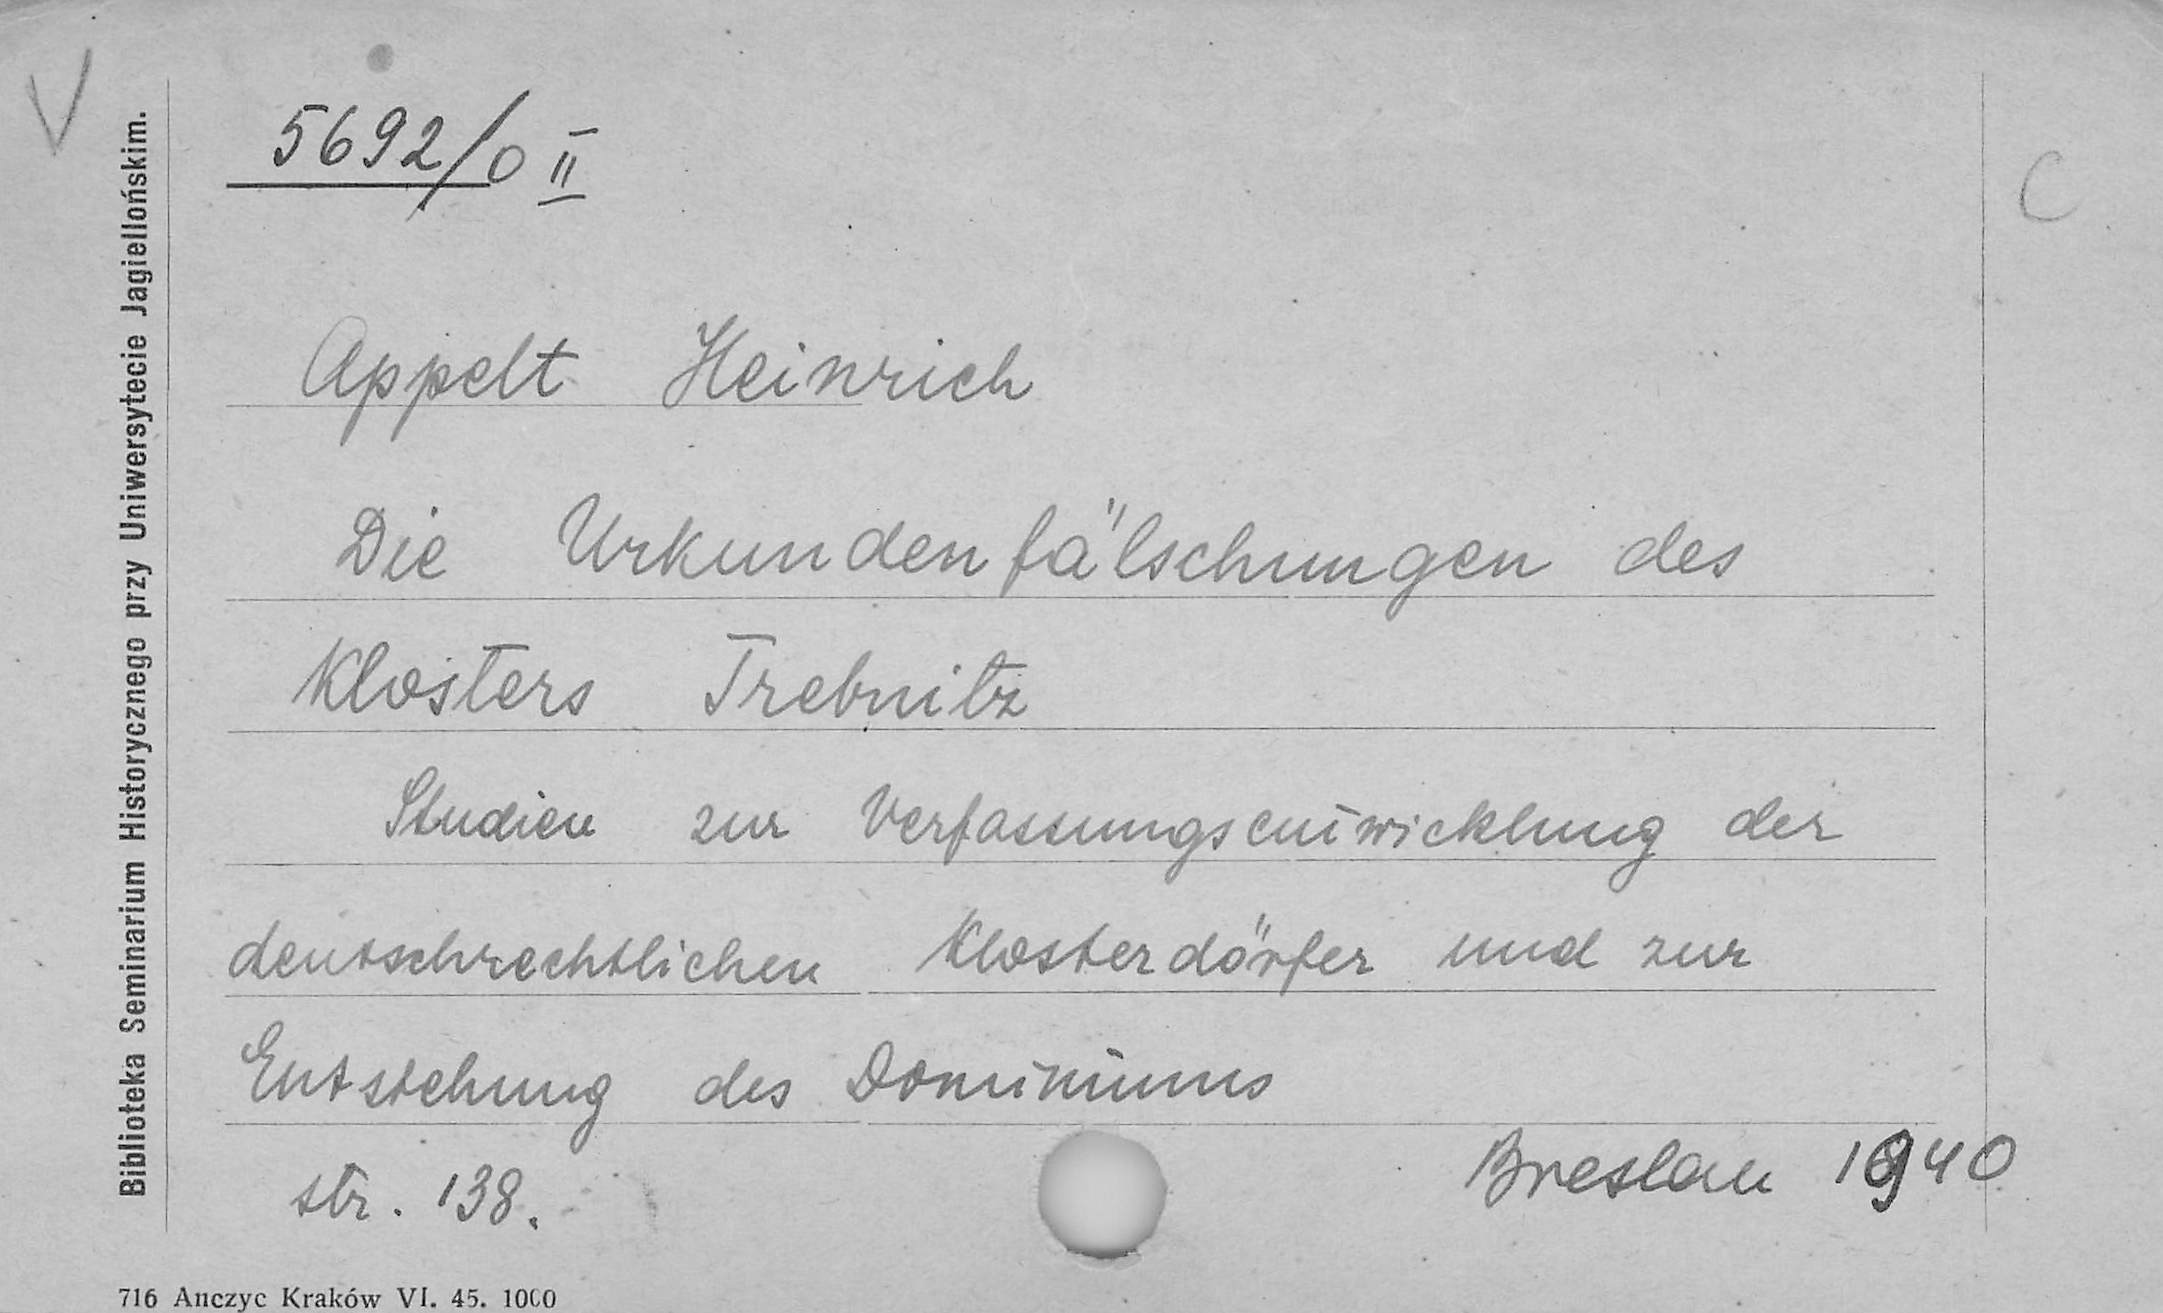 V
5692/0 II
C
Biblioteka Seminarium Historycznego przy Uniwersytecie Jagiellońskim.
Appelt Heinrich
Die Urkundenfälschungen des
Klosters Trebnitz
Studien zur Verfassungsentwicklung der
deutschrechtlichen Klosterdörfer und zur
Entstehung des Dominiums
Breslau 1940
str. 138.
716 Anczyc Kraków VI. 45. 1000